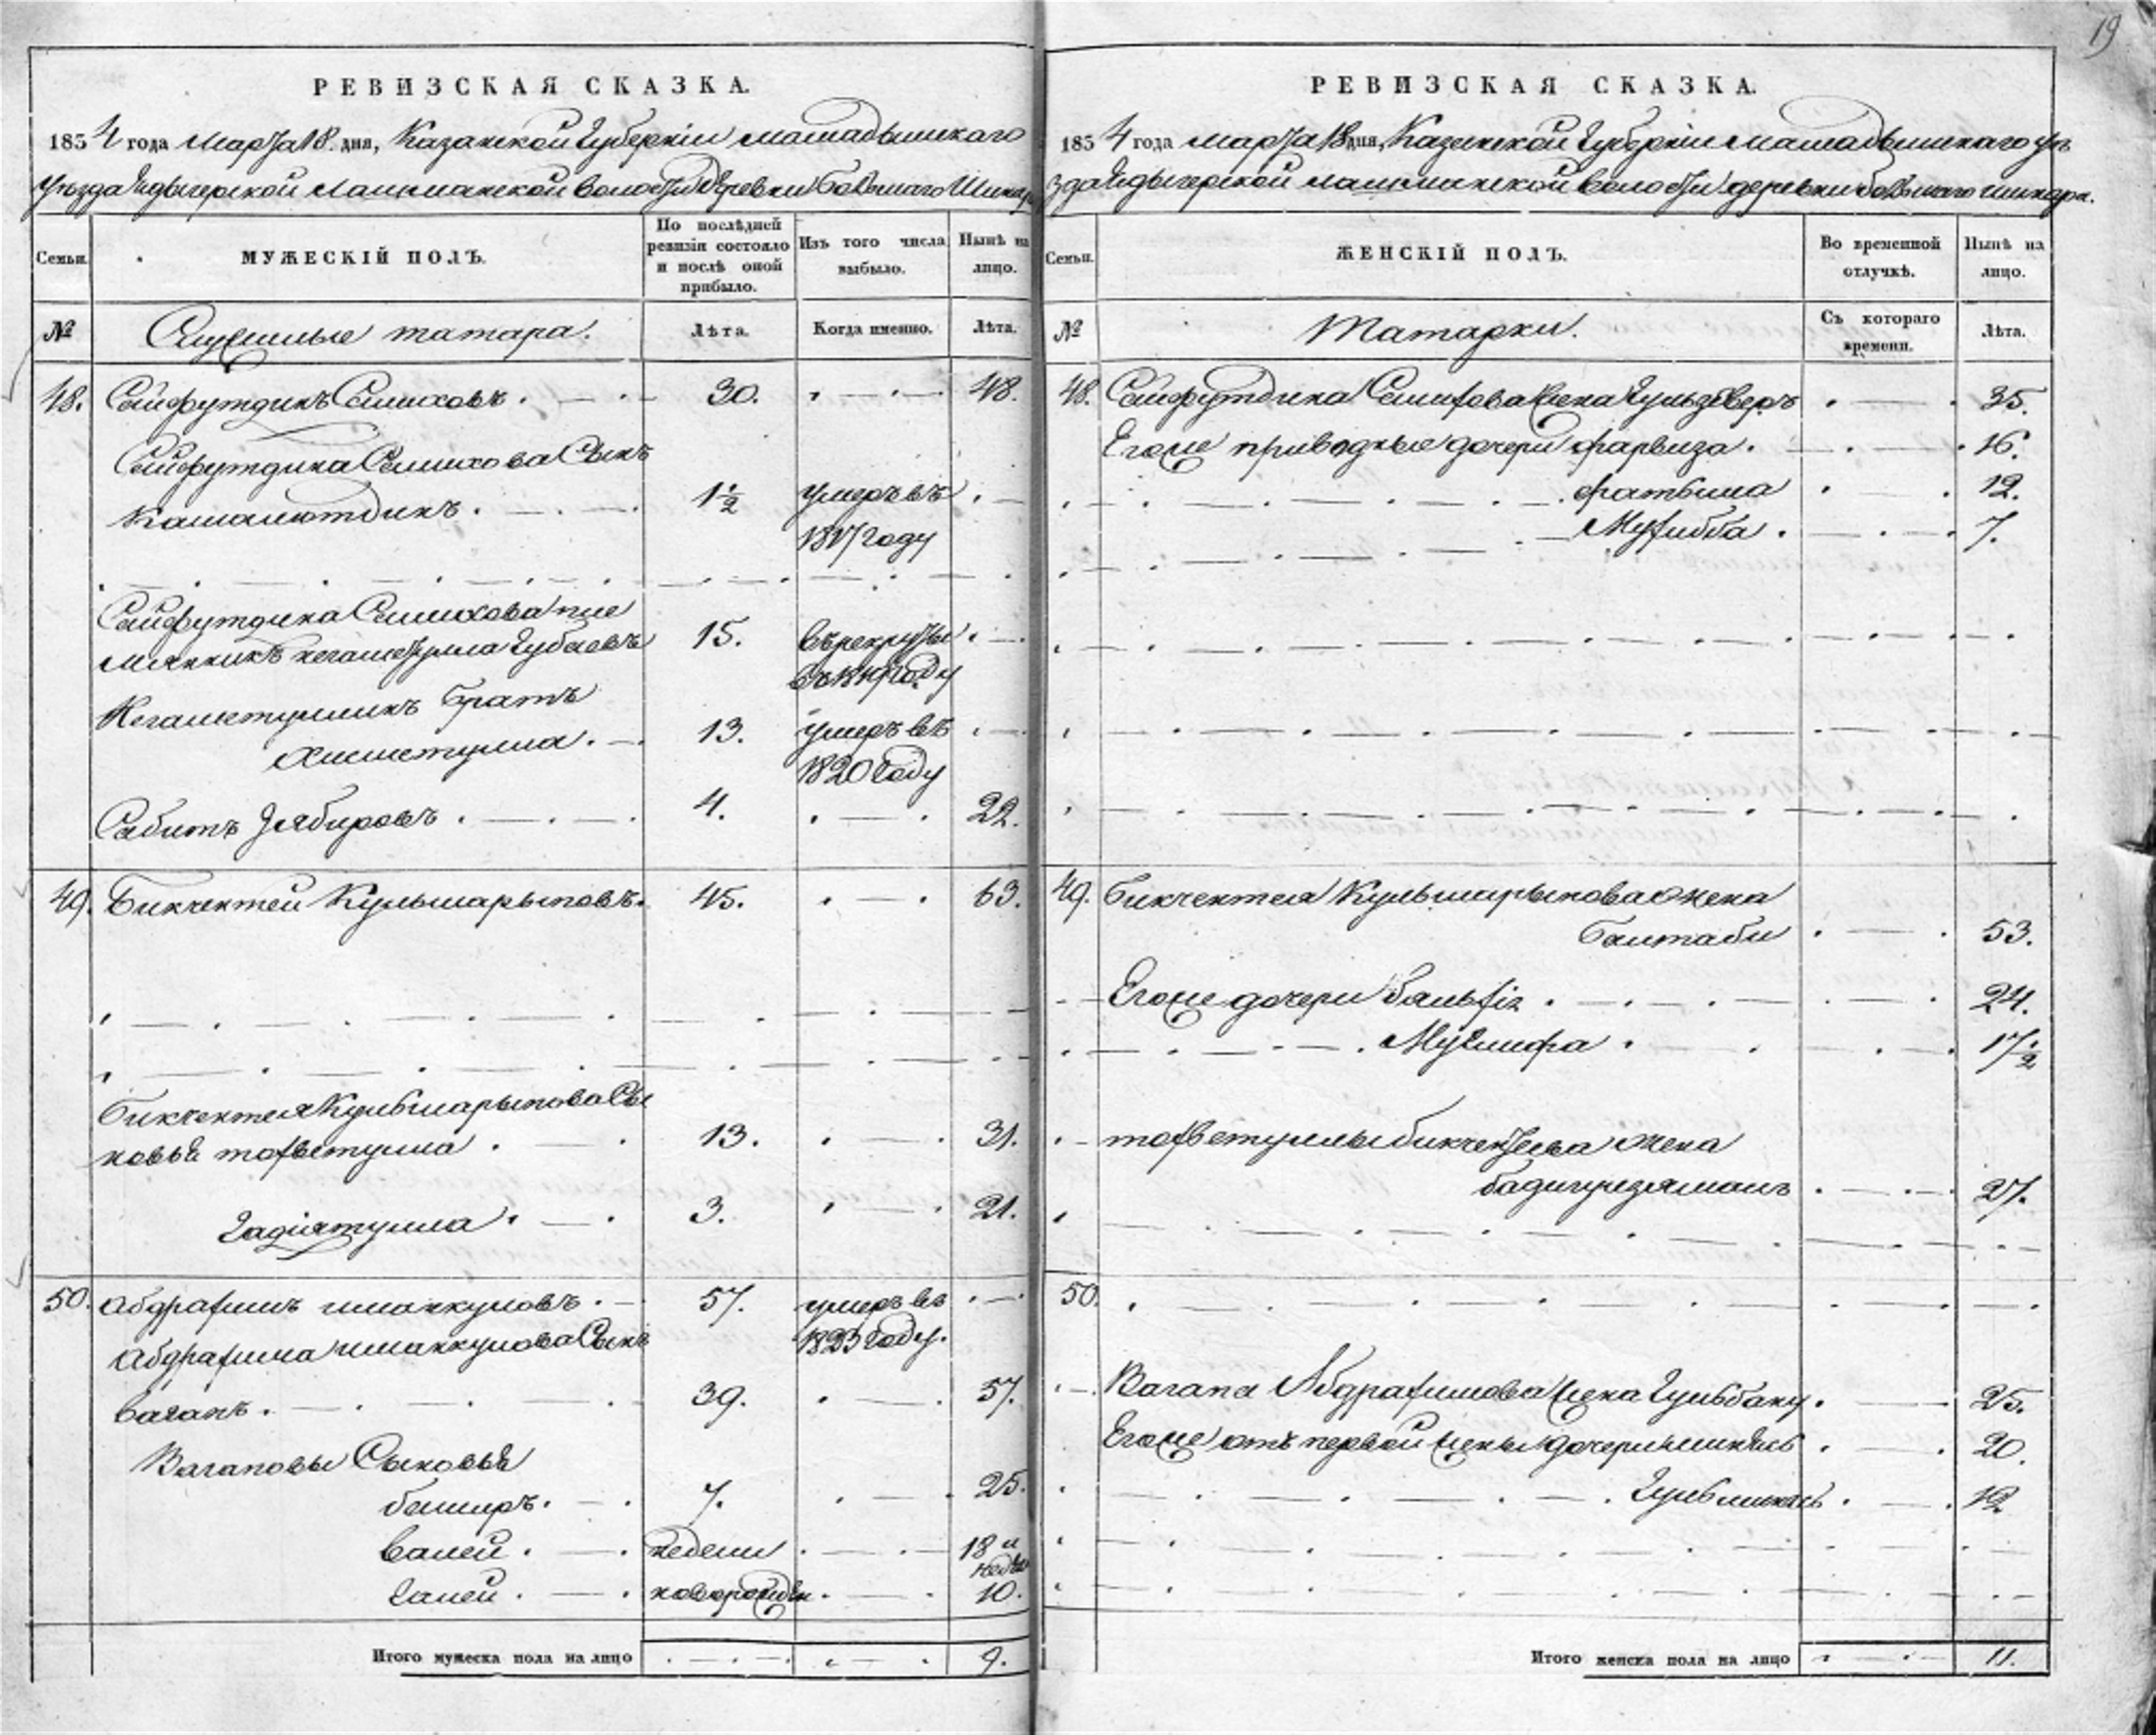 19
РЕВИЗСКАЯ СКАЗКА.
1834 года Марта 18 дня, Казанской Губернiи мамадышскаго
уѣзда волости деревни большаго Шинара
Семьи.
МУЖЕСКIЙ ПОЛЪ.
По послѣдней ревизiи состояло и послѣ оной прибыло.
Изъ того числа выбыло.
Нынѣ на лицо.
№
Служилые татара.
Лѣта.
Когда именно.
Лѣта.
48. Сейфутдинъ 30. 48.
Сейфутдина Сынъ
Камалютдинъ. 1½ умеръ въ
1817 году
Сейфутдина пле
мянникъ Губаевъ 15. въ рекруты
въ году
братъ
13. умеръ въ
1820 году
Сабитъ Зябировъ. 4. 22.
49. Бикчентей Кульшарыповъ. 45. 63.
Бикчентея Кульшарыпова Сы
новья тохветулла 13. 31.
Гадіятулла. 3. 21.
50. абдрафимъ иманкуловъ. 57. умеръ въ
1823 году.
абдрафима иманкулова Сынъ
вагапъ. 39. 57.
Вагаповы Сыновья
башыръ. 7. 25.
валей. недели 18 и
нед
галей. новорожден 10.
Итого мужеска пола на лицо 9.
РЕВИЗСКАЯ СКАЗКА.
1834 года марта 18 дня, Казанской Губернiи мамадышскаго уѣ
зда волости деревни большаго шинара.
Семьи.
ЖЕНСКIЙ ПОЛЪ.
Во временной отлучкѣ.
Нынѣ на лицо.
№
Татарки.
Съ котораго времени.
Лѣта.
48. Сейфутдина жена 35.
Егоже приводные дочери фарвиза. 16.
фатыма 12.
Мухибба. 7.
49. бикчентея Кульшарыпова жена
53.
Егоже дочери 24.
17½
тохветуллы жена
27.
50.
Вагапа Абдрафимова жена Гульбану. 25.
Егоже отъ первой жены дочери 20.
12
Итого женска пола на лицо 11.